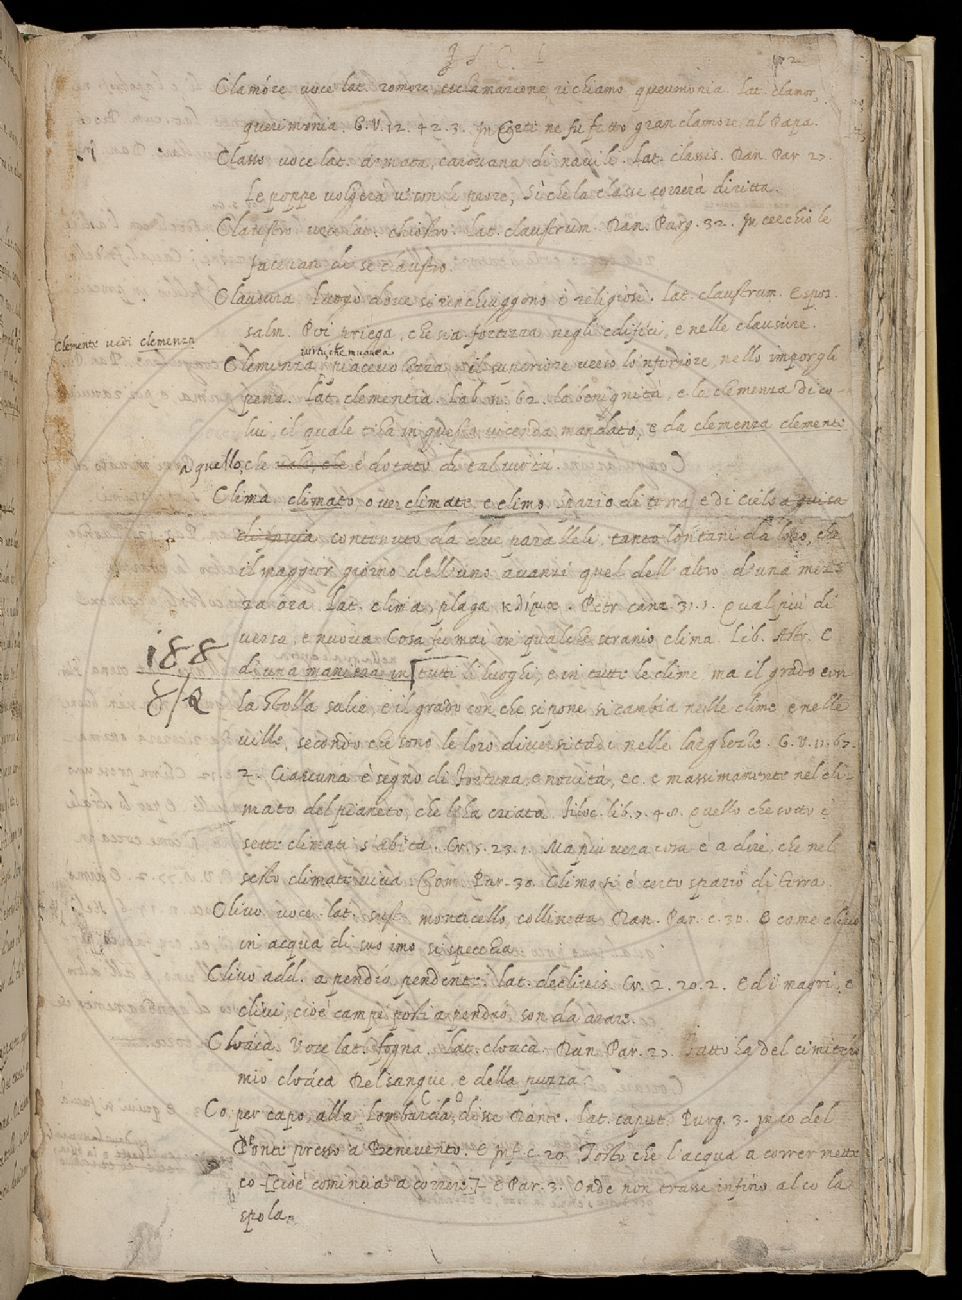 Clamóre voce lat. romore, esclamazione, richiamo, querimonia. lat. clamor,
querimonia. G. V. 12. 42. 3. In Corte ne fu fatto gran clamore al Papa.
Classo voce lat. armata, carovana di navile. lat. classis. Dan. Par. 27.
Le poppe volgerà u' son le prore, Sì che la classe correrà diritta.
Claustro voce lat. chiostro. lat. claustrum. Dan. Purg. 32. In cerchio le
facevan di se claustro.
Clausura luogo dove si rinchiuggono i religiosi. lat. claustrum. Espos.
salm. Poi priega, che sia fortezza negli edifici, e nelle clausure.
Clemente vedi clemenza
virtù, che muove a
Clemenza piacevolezza il superiore verso lo 'nferiore, nello imporgli
pena. lat. clementia. Lab. n. 62. la benignità, e la clemenza di co-
lui, il quale t'ha in questa vicenda mandato, E da clemenza clementi
a quello, che vale, che è dotato di tal virtù.
Clima climato over climate e climo spazio di terra e di cielo a guisa
di fascia contenuto da due paralleli, tanto lontani da loro, che
il maggior giorno dell'uno avanzi quel dell'altro d'una mez-
za ora. lat. clima, plaga κλίμα. Petr. canz. 31. 1. Qual più di
versa, e nuova Cosa fu mai in qualche stranio clima. Lib. Astr. E
188
di una maniera in tutti li luoghi, e in tutte le clime, ma il grado con
la stella salie, e il grado con che si pone si cambia nelle clime e nelle
ville, secondo che sono le loro diversitadi nelle larghezze. G. V. 11. 67.
2. Ciascuna è segno di fortuna, e novità, ec. e massimamente nel cli-
mato del pianeto, che l'ha criata. Filoc. lib. 7. 48. quello che sotto i
sette climati s'abita. Cr. 5. 23. 1. Ma più vera cosa è a dire, che nel
sesto climate viva. Com. Par. 30. Climo si è certo spazio di terra.
Clivo voce lat. sust. monticello, collinetta. Dan. Par. c. 30. E come clivo
in acqua di suo imo si specchia
Clivo add. a pendío, pendente. lat. declivis. Cr. 2. 20. 2. E di magri, e
clivi, cioè campi posti a pendío, son da arare.
Cloáca. Voce lat. fogna. lat. cloaca. Dan. Par. 27. Fatto ha del cimiterio
mio cloáca Del sangue, e della puzza
Co, per capo, alla Lombarda, disse Dante. lat. caput. Purg. 3. In co del
Ponte presso a Benevento. E Inf. c. 20. Tosto che l'acqua a correr mette
co [cioè comincia a correre] E Par. 3. Onde non trasse infino al co la
spola.